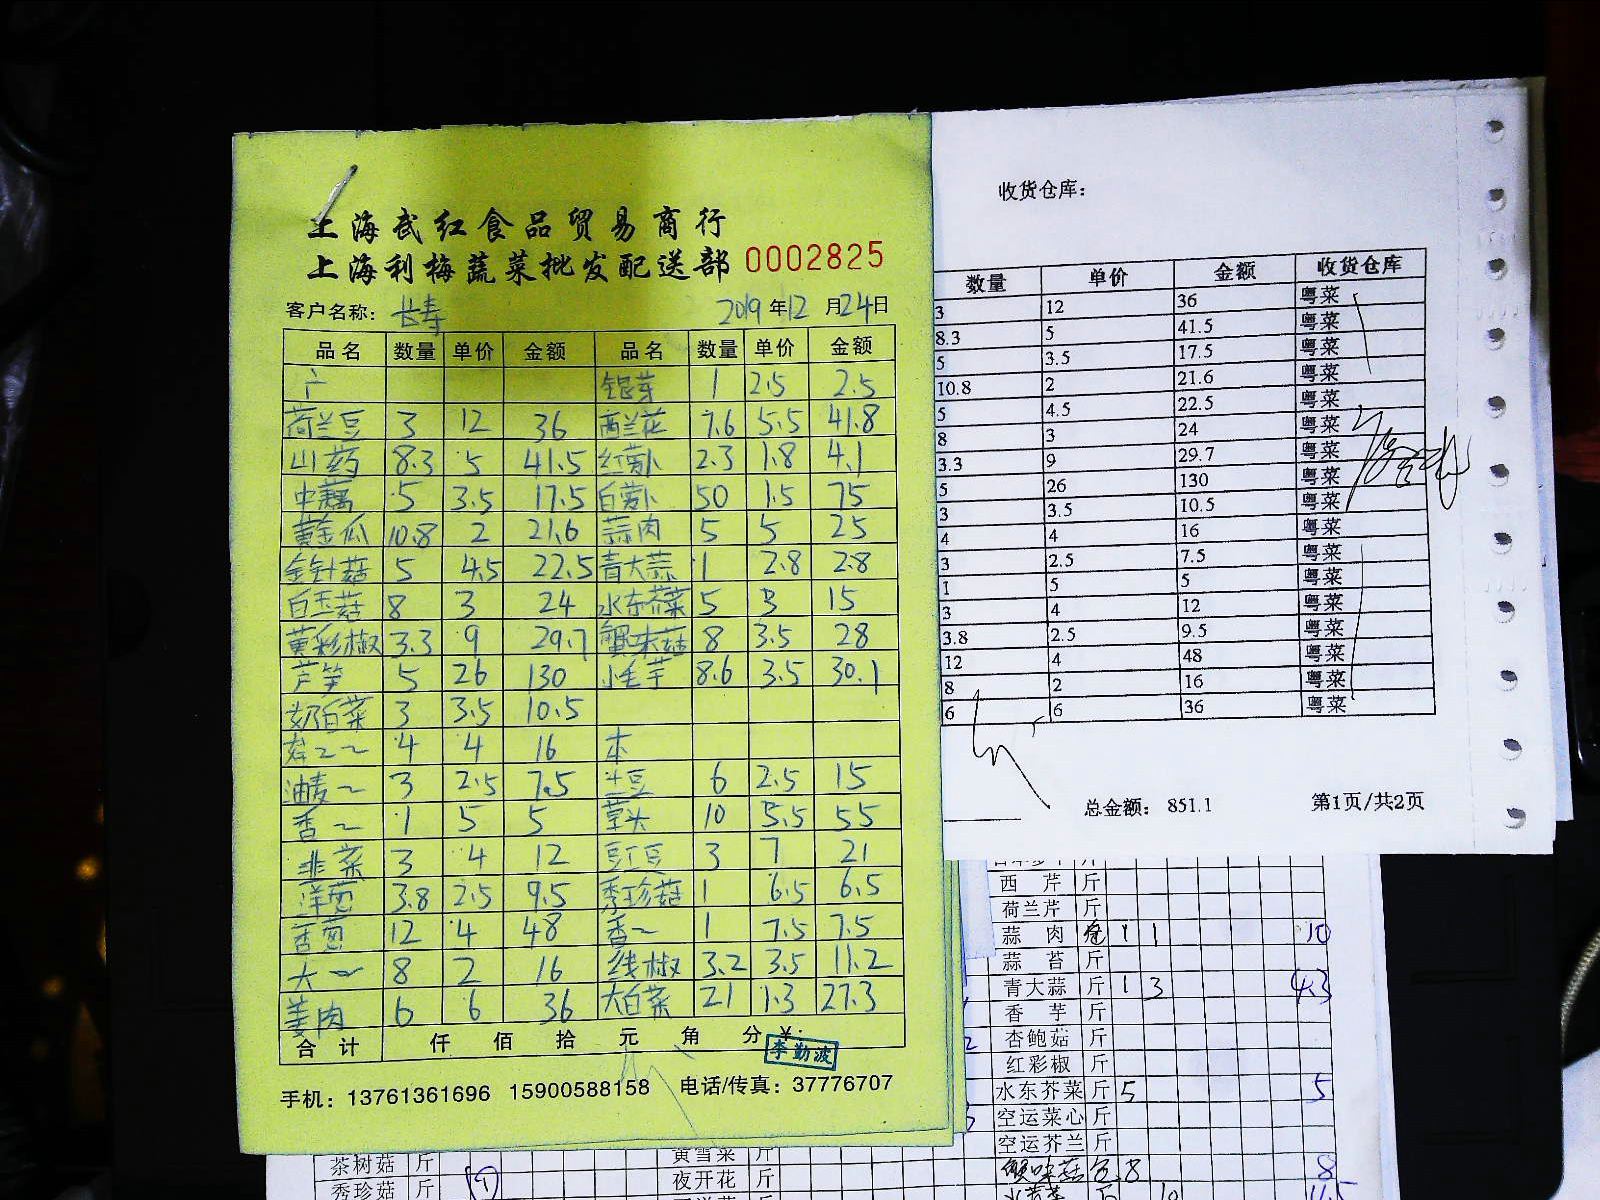 上海武红食品贸易商行
上海利梅蔬菜批发配送部 0002825
客户名称: 长寿 2019年12月24日
品名 数量 单价 金额 品名 数量 单价 金额
广 银芽 1 2.5 2.5
荷兰豆 3 12 36 西兰花 7.6 5.5 41.8
山药 8.3 5 41.5 红萝卜 2.3 1.8 4.1
中藕 5 3.5 17.5 白萝卜 50 1.5 75
黄金瓜 10.8 2 21.6 蒜肉 5 5 25
金针菇 5 4.5 22.5 青大蒜 1 2.8 2.8
白玉菇 8 3 24 水东芥菜 5 3 15
黄彩椒 3.3 9 29.7 蟹味菇 8 3.5 28
芦笋 5 26 130 小毛芋 8.6 3.5 30.1
奶白菜 3 3.5 10.5
4 4 16 本
油麦~ 3 2.5 7.5 土豆 6 2.5 15
香~ 1 5 5 草头 10 5.5 55
韭菜 3 4 12 豇豆 3 7 21
洋葱 3.8 2.5 9.5 秀珍菇 1 6.5 6.5
香葱 12 4 48 香~ 1 7.5 7.5
大~ 8 2 16 线椒 3.2 3.5 11.2
姜肉 6 6 36 大白菜 21 1.3 27.3
合计 仟 佰 拾 元 角 分 ¥:
李勤波
手机: 13761361696 15900588158 电话/传真: 37776707
收货仓库:
数量 单价 金额 收货仓库
3 12 36 粤菜
8.3 5 41.5 粤菜
5 3.5 17.5 粤菜
10.8 2 21.6 粤菜
5 4.5 22.5 粤菜
8 3 24 粤菜
3.3 9 29.7 粤菜
5 26 130 粤菜
3 3.5 10.5 粤菜
4 4 16 粤菜
3 2.5 7.5 粤菜
1 5 5 粤菜
3 4 12 粤菜
3.8 2.5 9.5 粤菜
12 4 48 粤菜
8 2 16 粤菜
6 6 36 粤菜
总金额: 851.1 第1页/共2页
西芹 斤
荷兰芹 斤
蒜肉 包 1 1 10
蒜苔 斤
青大蒜 斤 1 3 4.3
香芋 斤
杏鲍菇 斤
红彩椒 斤
水东芥菜 斤 5 5
空运菜心 斤
空运芥兰 斤
蟹味菇 包 8 8
茶树菇 斤 黄雪菜 斤
秀珍菇 斤 1 夜开花 斤